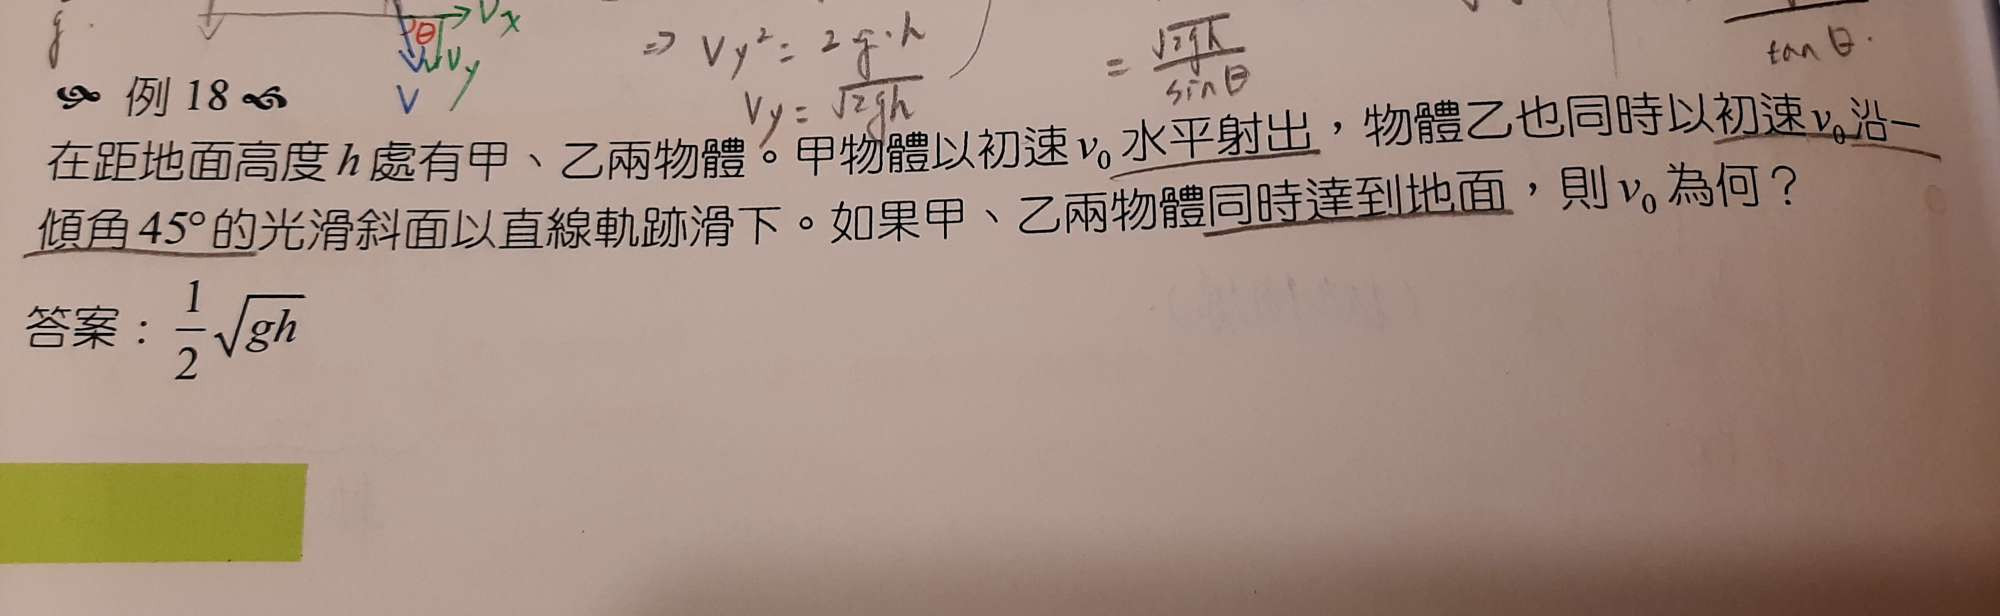 g.
θ
Vx
Vy
V
⇒ Vy² = 2g·h
Vy = √2gh
= √2gh / sinθ
tanθ.
例 18
在距地面高度 h 處有甲、乙兩物體。甲物體以初速 v₀ 水平射出，物體乙也同時以初速 v₀ 沿一
傾角 45° 的光滑斜面以直線軌跡滑下。如果甲、乙兩物體同時達到地面，則 v₀ 為何？
答案：1/2 √gh